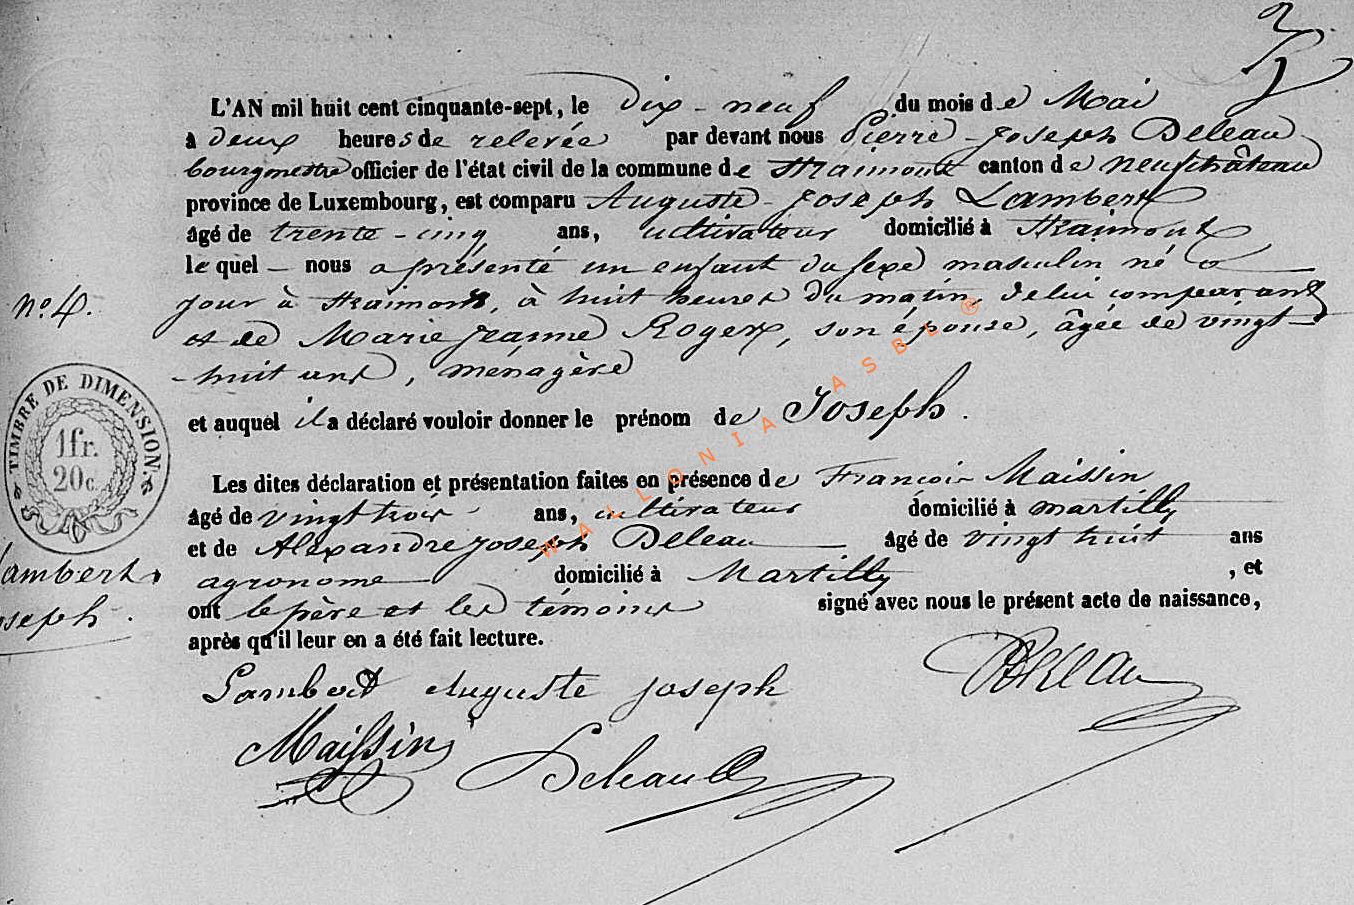 L'AN mil huit cent cinquante-sept, le dix-neuf du mois de Mai
à deux heures de relevée par devant nous Pierre-Joseph Deleau
bourgmestre officier de l'état civil de la commune de Straimont canton de neufchâteau
province de Luxembourg, est comparu Auguste-Joseph Lambert
âgé de trente-cinq ans, cultivateur domicilié à Straimont
le quel - nous a présenté un enfant du sexe masculin né ce
n° 4.
jour à Straimont, à huit heures du matin, de lui comparant
et de Marie Jeanne Rogex, son épouse, âgée de vingt-
-huit ans, ménagère
et auquel il a déclaré vouloir donner le prénom de Joseph.
TIMBRE DE DIMENSION.
1 fr.
20 c.
Les dites déclaration et présentation faites en présence de François Maissin
âgé de vingt trois ans, cultivateur domicilié à martilly
et de Alexandre joseph Deleau âgé de vingt huit ans
Lambert,
agronome domicilié à Martilly, et
Joseph.
ont le père et les témoins signé avec nous le présent acte de naissance,
après qu'il leur en a été fait lecture.
Lambert Auguste joseph
Deleau
Maissin
Deleau
WALLONIA ASBL ®